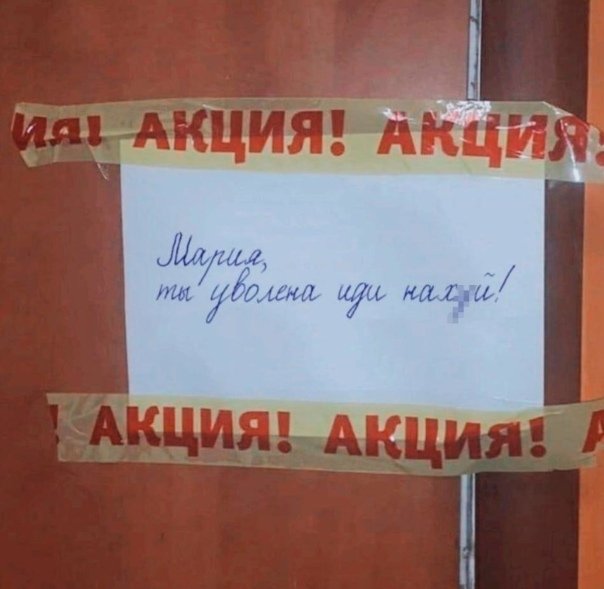 ИЯ! АКЦИЯ! АКЦИЯ!
Мария,
ты уволена иди нах й!
! АКЦИЯ! АКЦИЯ! А